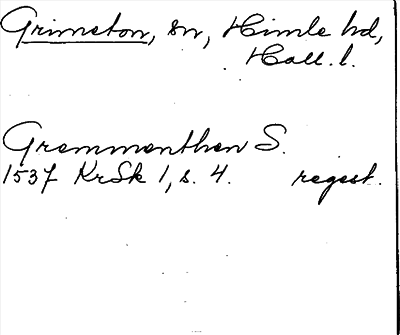 Grimeton, sn, Himle hd,
Hall. l.
Gremmenthen S.
1537 KrSk 1, s. 4. regest.